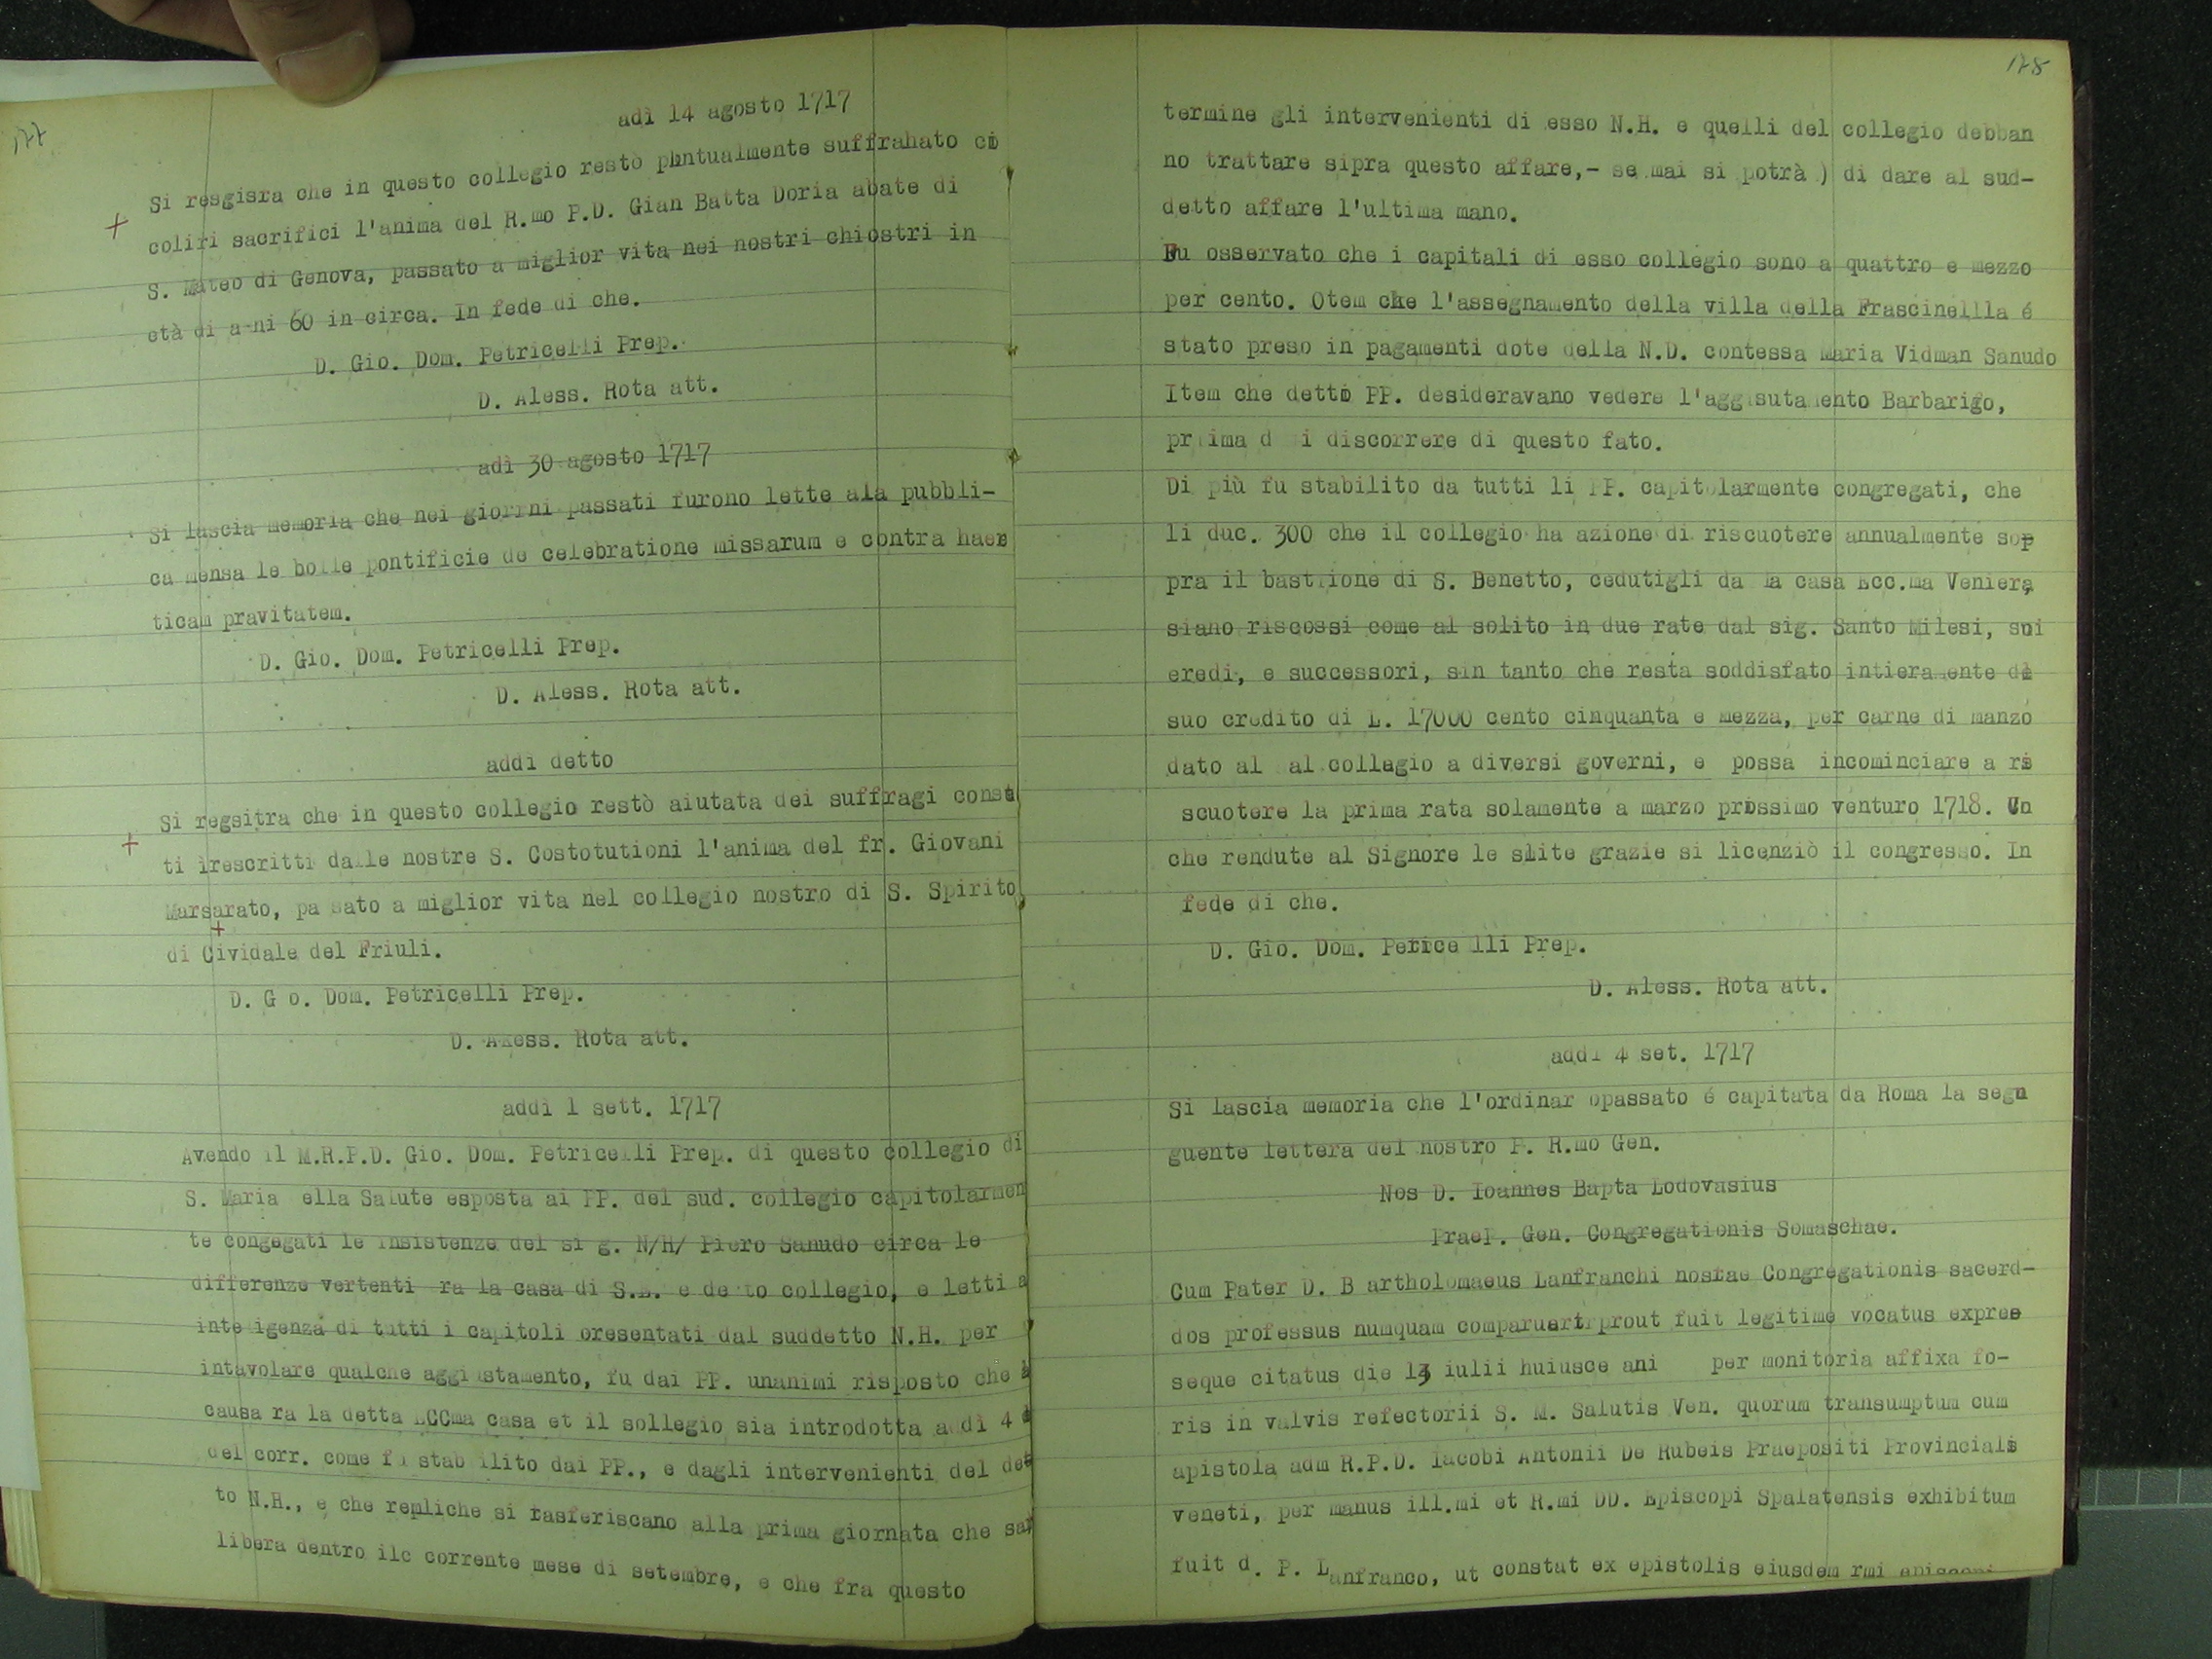 177
adì 14 agosto 1717
Si resgisra che in questo collegio restò puntualmente suffrahato co
coliri sacrifici l'anima del R.mo P.D. Gian Batta Doria abate di
S. Mateo di Genova, passato a miglior vita nei nostri chiostri in
età di a ni 60 in circa. In fede di che.
D. Gio. Dom. Petricelli Prep.
D. Aless. Rota att.
adì 30 agosto 1717
Si lascia memoria che nei giorrni passati furono lette ala pubbli-
ca mensa le bolle pontificie de celebratione missarum e contra haer
ticam pravitatem.
D. Gio. Dom. Petricelli Prep.
D. Aless. Rota att.
addì detto
Si regsitra che in questo collegio restò aiutata dei suffragi const
ti irescritti dalle nostre S. Costotutioni l'anima del fr. Giovani
Marsarato, pa sato a miglior vita nel collegio nostro di S. Spirito
di Cividale del Friuli.
D. G o. Dom. Petricelli Prep.
D. Akess. Rota att.
addì 1 sett. 1717
Avendo il M.R.P.D. Gio. Dom. Petricelli Prep. di questo collegio di
S. Maria ella Salute esposta ai PP. del sud. collegio capitolarmen
te congegati le insistenze del si g. N/H/ Piero Sanudo circa le
differenze vertenti ra la casa di S.E. e detto collegio, e letti a
inteligenza di tutti i capitoli oresentati dal suddetto N.H. per
intavolare qualche aggiustamento, fu dai PP. unanimi risposto che
causa ra la detta ECCma casa et il sollegio sia introdotta addì 4
del corr. come fu stabilito dai PP., e dagli intervenienti del det
to N.H., e che repliche si rasferiscano alla prima giornata che sar
libera dentro ilc corrente mese di setembre, e che fra questo
178
termine gli intervenienti di esso N.H. e quelli del collegio debban
no trattare sipra questo affare,- se mai si potrà ) di dare al sud-
detto affare l'ultima mano.
Fu osservato che i capitali di esso collegio sono a quattro e mezzo
per cento. Otem che l'assegnamento della villa della Frascinellla é
stato preso in pagamenti dote della N.D. contessa Maria Vidman Sanudo
Item che detti PP. desideravano vedere l'aggisutamento Barbarigo,
priima d i discorrere di questo fato.
Di più fu stabilito da tutti li PP. capitolarmente congregati, che
li duc. 300 che il collegio ha azione di riscuotere annualmente sop
pra il bastiione di S. Benetto, cedutigli da la casa Ecc.ma Veniera
siano riscossi come al solito in due rate dal sig. Santo Milesi, suoi
eredi, e successori, sin tanto che resta soddisfato intieramente de
suo credito di L. 17000 cento cinquanta e mezza, per carne di manzo
dato al al collegio a diversi governi, e possa incominciare a ri
scuotere la prima rata solamente a marzo prossimo venturo 1718. Un
che rendute al Signore le slite grazie si licenziò il congresso. In
fede di che.
D. Gio. Dom. Petrice lli Prep.
D. Aless. Rota att.
addì 4 set. 1717
Si lascia memoria che l'ordinar opassato é capitata da Roma la segu
guente lettera del nostro P. R.mo Gen.
Nos D. Ioannes Bapta Lodovasius
Praep. Gen. Congregationis Somaschae.
Cum Pater D. B artholomaeus Lanfranchi nostae Congregationis sacerd-
dos professus numquam comparuert prout fuit legitime vocatus expres
seque citatus die 13 iulii huiusce ani per monitoria affixa fo-
ris in valvis refectorii S. M. Salutis Ven. quorum transumptum cum
apistola adm R.P.D. Iacobi Antonii De Rubeis Praepositi Provincialis
veneti, per manus ill.mi et R.mi DD. Episcopi Spalatensis exhibitum
fuit d. P. Lanfranco, ut constat ex epistolis eiusdem rmi episcopi